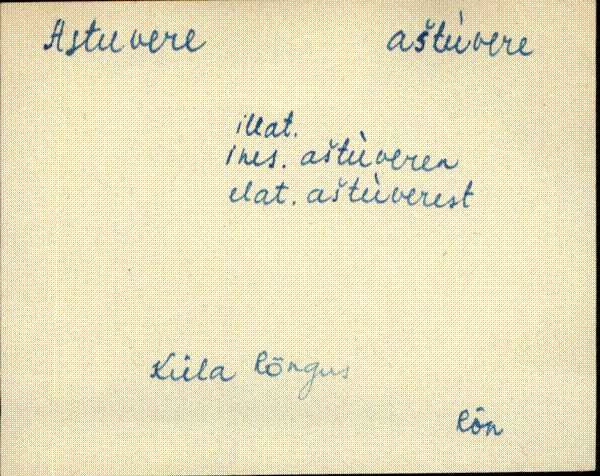 Astuvere aštùvere
illat.
ines. aštùveren
elat. aštùverest
Küla Rõngus
Rõn